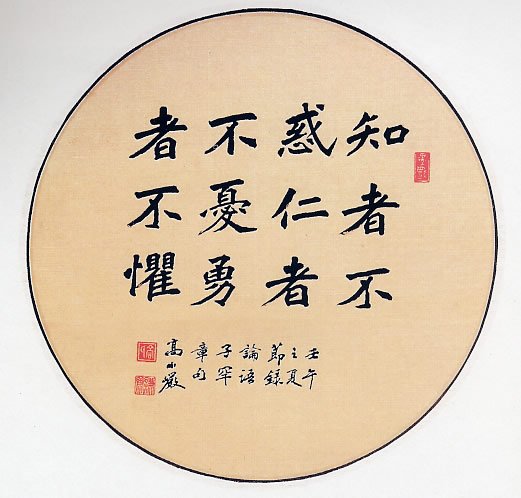 知者不
惑仁者
不憂勇
者不懼
壬午
之夏
節錄
論語
子罕
章句
高小巖